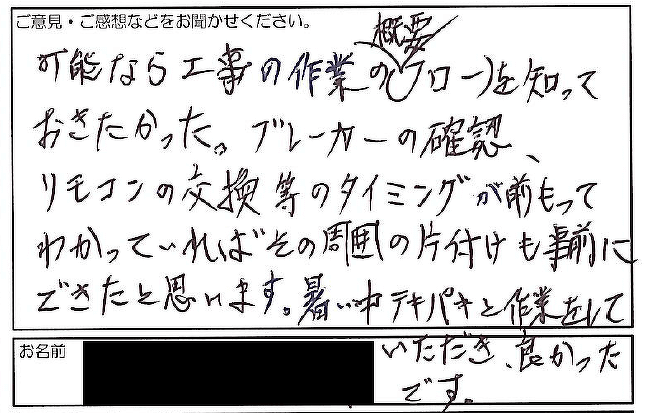 ご意見・ご感想などをお聞かせください。
可能なら工事の作業の概要(フロー)を知って
おきたかった。ブレーカーの確認、
リモコンの交換等のタイミングが前もって
わかっていればその周囲の片付けも事前に
できたと思います。暑い中テキパキと作業をして
いただき、良かった
です。
お名前